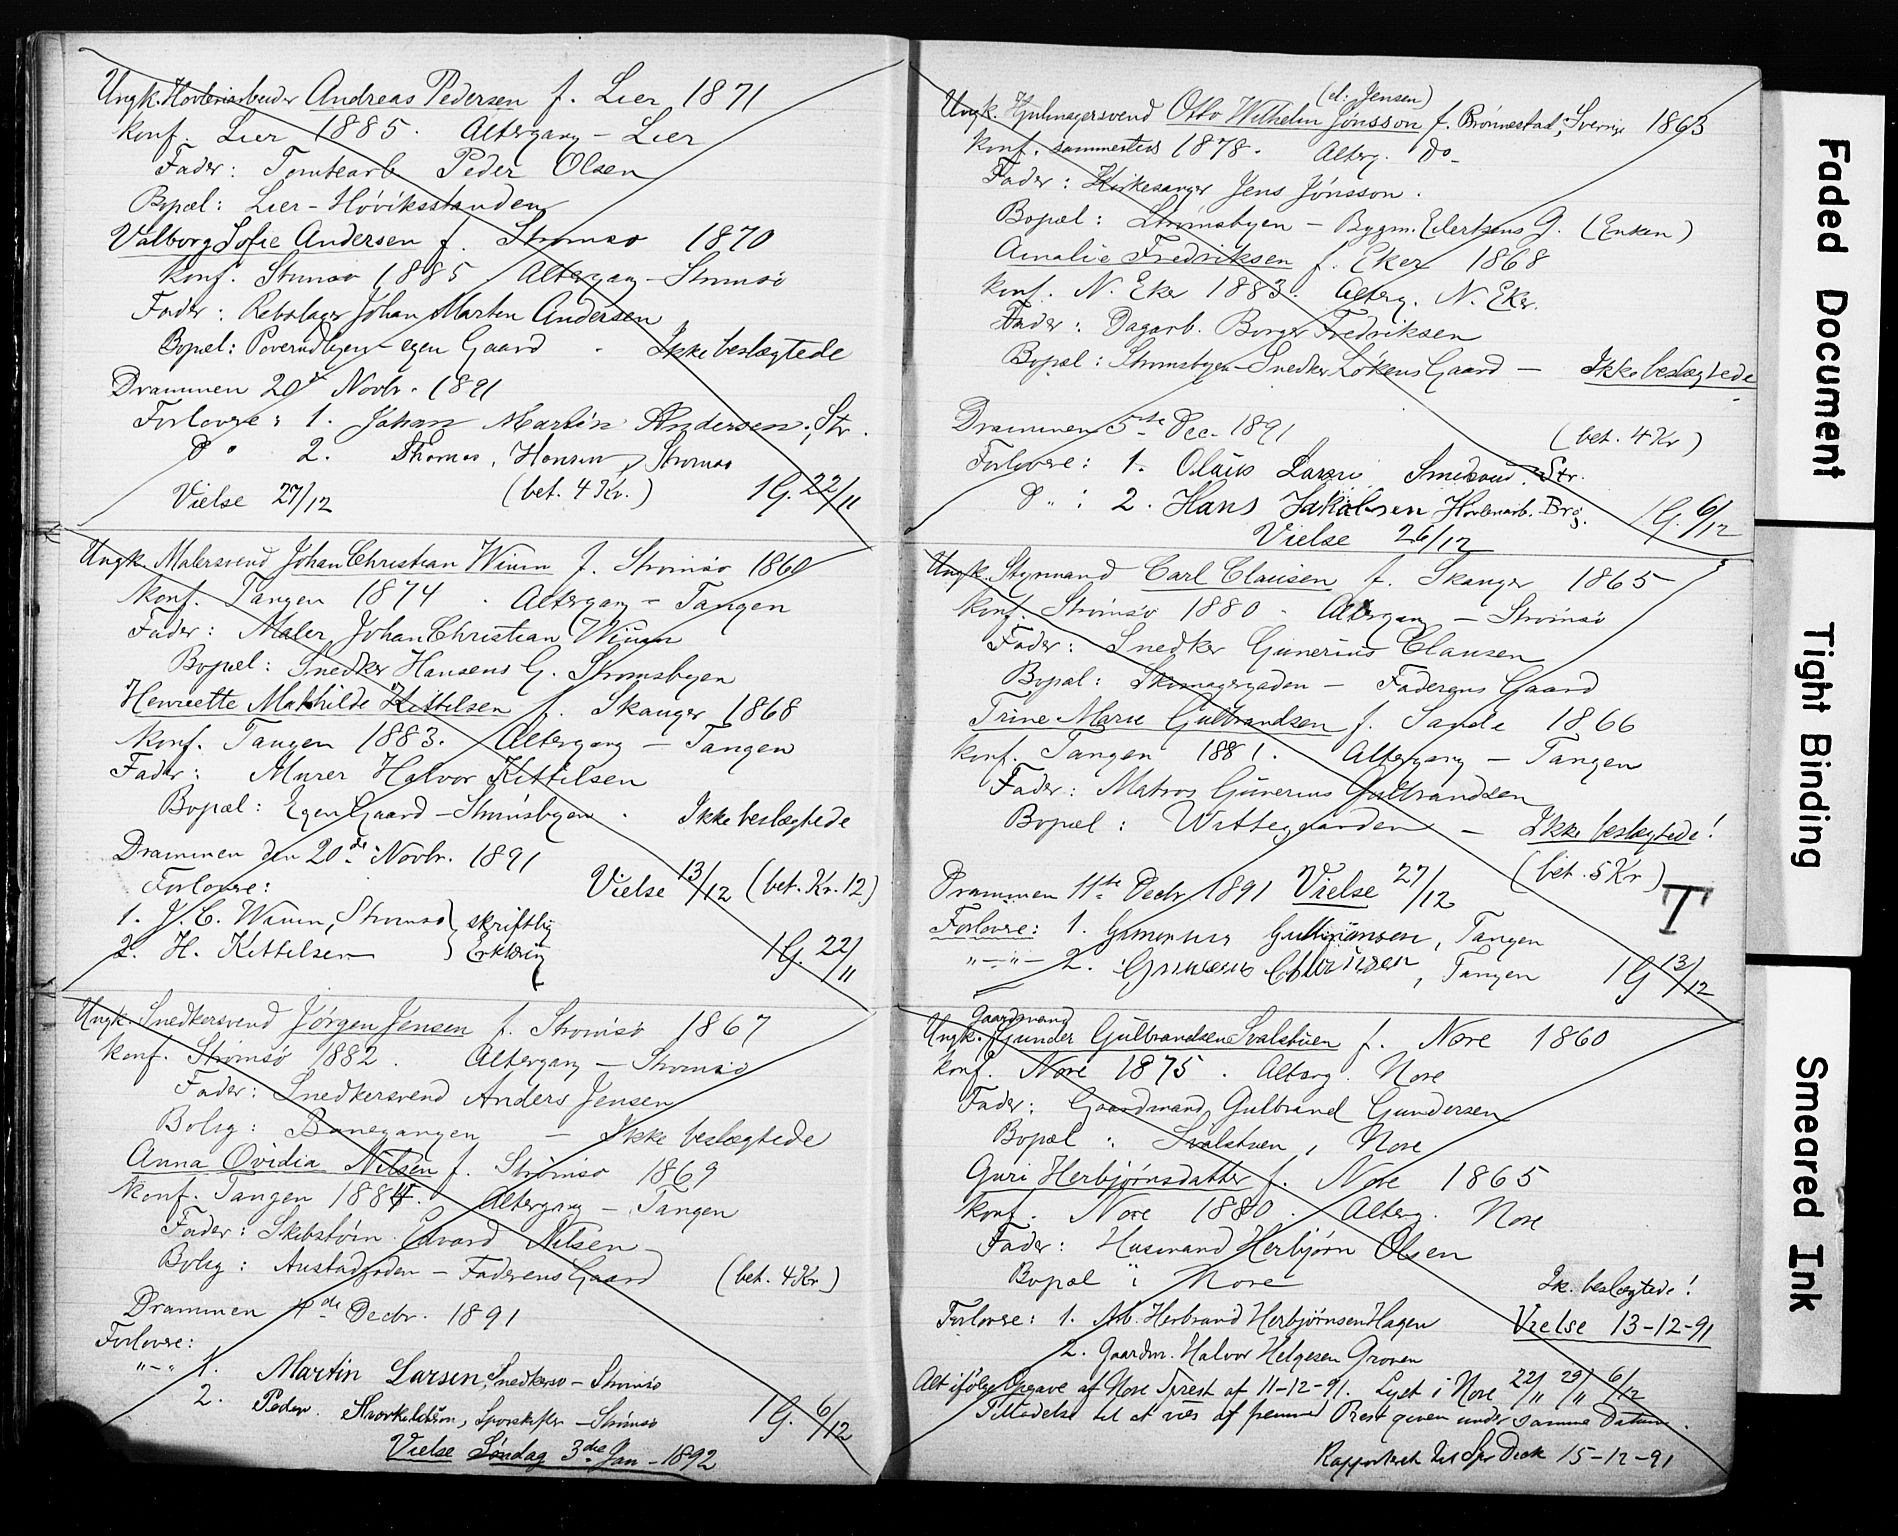 Ungk. Høvleriarbeider Andreas Pedersen f. Lier 1871
Konf. Lier 1885. Altergang – Lier
Fader: Tomtearb Peder Olsen
Bopæl: Lier – Høvikstranden
Valborg Sofie Andersen f. Strømsø 1870
Konf. Strømsø 1885 Altergang – Strømsø
Fader: Rebslager Johan Martin Andersen
Bopæl: Poverudbyen – egen Gaard . Ikke beslægtede
Drammen 20de Novbr. 1891
Forlovere: 1. Johan Martin Andersen, Str.
Do 2. Thomas Hansen, Strømsø
Vielse 27/12 (bet. 4 Kr.) 1 G. 22/11
Ungk. Malersvend Johan Christian Wium f. Strømsø 1860
Konf. Tangen 1874 . Altergang – Tangen
Fader: Maler Johan Christian Wium
Bopæl: Snedker Hansens G. Strømsbyen
Henriette Mathilde Kittilsen f. Skauger 1868
Konf. Tangen 1883. Altergang – Tangen
Fader: Murer Halvor Kittilsen
Bopæl: Egen Gaard – Strømsbyen . Ikke beslægtede
Drammen den 20de Novbr. 1891
Forlovere: Vielse 13/12 (bet. Kr. 12)
1. J. C. Wium, Strømsø } skriftlig
2. H. Kittilsen } Erklæring 1 G. 22/11
Ungk. Snedkersvend Jørgen Jensen f. Strømsø 1867
Konf. Strømsø 1882. Altergang – Strømsø
Fader: Snedkersvend Anders Jensen
Bolig: Banegangen – Ikke beslægtede
Anna Ovidia Nilsen f. Strømsø 1869
Konf. Tangen 1884. Altergang – Tangen
Fader: Skibstøm. Edvard Nilsen
Bolig: Austadgaden – Faderens Gaard (bet. 4 Kr.)
Drammen 4de Decbr. 1891
Forlovere:
"–" 1. Martin Larsen, Snedkersv – Strømsø
2. Peder , Sporskifter – Strømsø 1 G. 6/12
Vielse Søndag 3die Jan – 1892
(el. Jensen)
Ungk. Hjulmagersvend Otto Wilhelm Jønsson f. Brönnestad, Sverige 1863
Konf. sammesteds 1878. Alterg. do –
Fader: Kirkesanger Jens Jønsson.
Bopæl: Strømsbyen – Bygm. Eilertsens G. (Enken)
Amalie Fredriksen f. Eker 1868
Konf. N. Eker 1883. Alterg. N. Eker.
Fader: Dagarb. Borger Fredriksen
Bopæl: Strømsbyen – Snedker Løkens Gaard – Ikke beslægtede
Drammen 5te Dec. 1891 (bet. 4 Kr)
Forlovere: 1. Olaus Larsen Smedsvend. Str.
D " : 2. Hans Jakobsen Høvleriarb. Brg. 1 G. 6/12
Vielse 26/12
Ungk. Styrmand Carl Clausen f. Skauger 1865
Konf. Strømsø 1880 . Altergang – Strømsø
Fader: Snedker Gunerius Clausen
Bopæl: Skomagergaden – Faderens Gaard
Trine Marie Gulbrandsen f. Sande 1866
Konf. Tangen 1881. Altergang – Tangen
Fader: Matros Gunerius Gulbrandsen
Bopæl: Wittegaarden – Ikke beslægtede!
(bet. 5 Kr)
Drammen 11te Decbr 1891 Vielse 27/12 T
Forlovere: 1. Gunerius Gulbransen, Tangen
"–"– 2. Gunerius Claussen, Tangen 1 G 13/12
Gaardmand
Ungk. Gunder Gulbrandsen Svalstuen f. Nore 1860
Konf. Nore 1875. Alterg. Nore
Fader: Gaardmand Gulbrand Gundersen
Bopæl : Svalstuen, Nore
Guri Herbjørnsdatter f. Nore 1865
Konf. Nore 1880. Alterg. Nore
Fader: Husmand Herbjørn Olsen
Bopæl : Nore Ik. beslægtede!
Forlovere: 1. Arb. Herbrand Herbjørnsen Hagen Vielse 13-12-91
2. Gaardm. Halvor Helgesen Groven
Alt ifølge Opgave af Nore Sprest af 11-12-91. Lyst i Nore 22/11 29/11 6/12
Tilladelse til at vies af fremmed Prest given under samme Datum.
Rapporteret til Spr Deck 15-12-91
Faded Document
Tight Binding
Smeared Ink